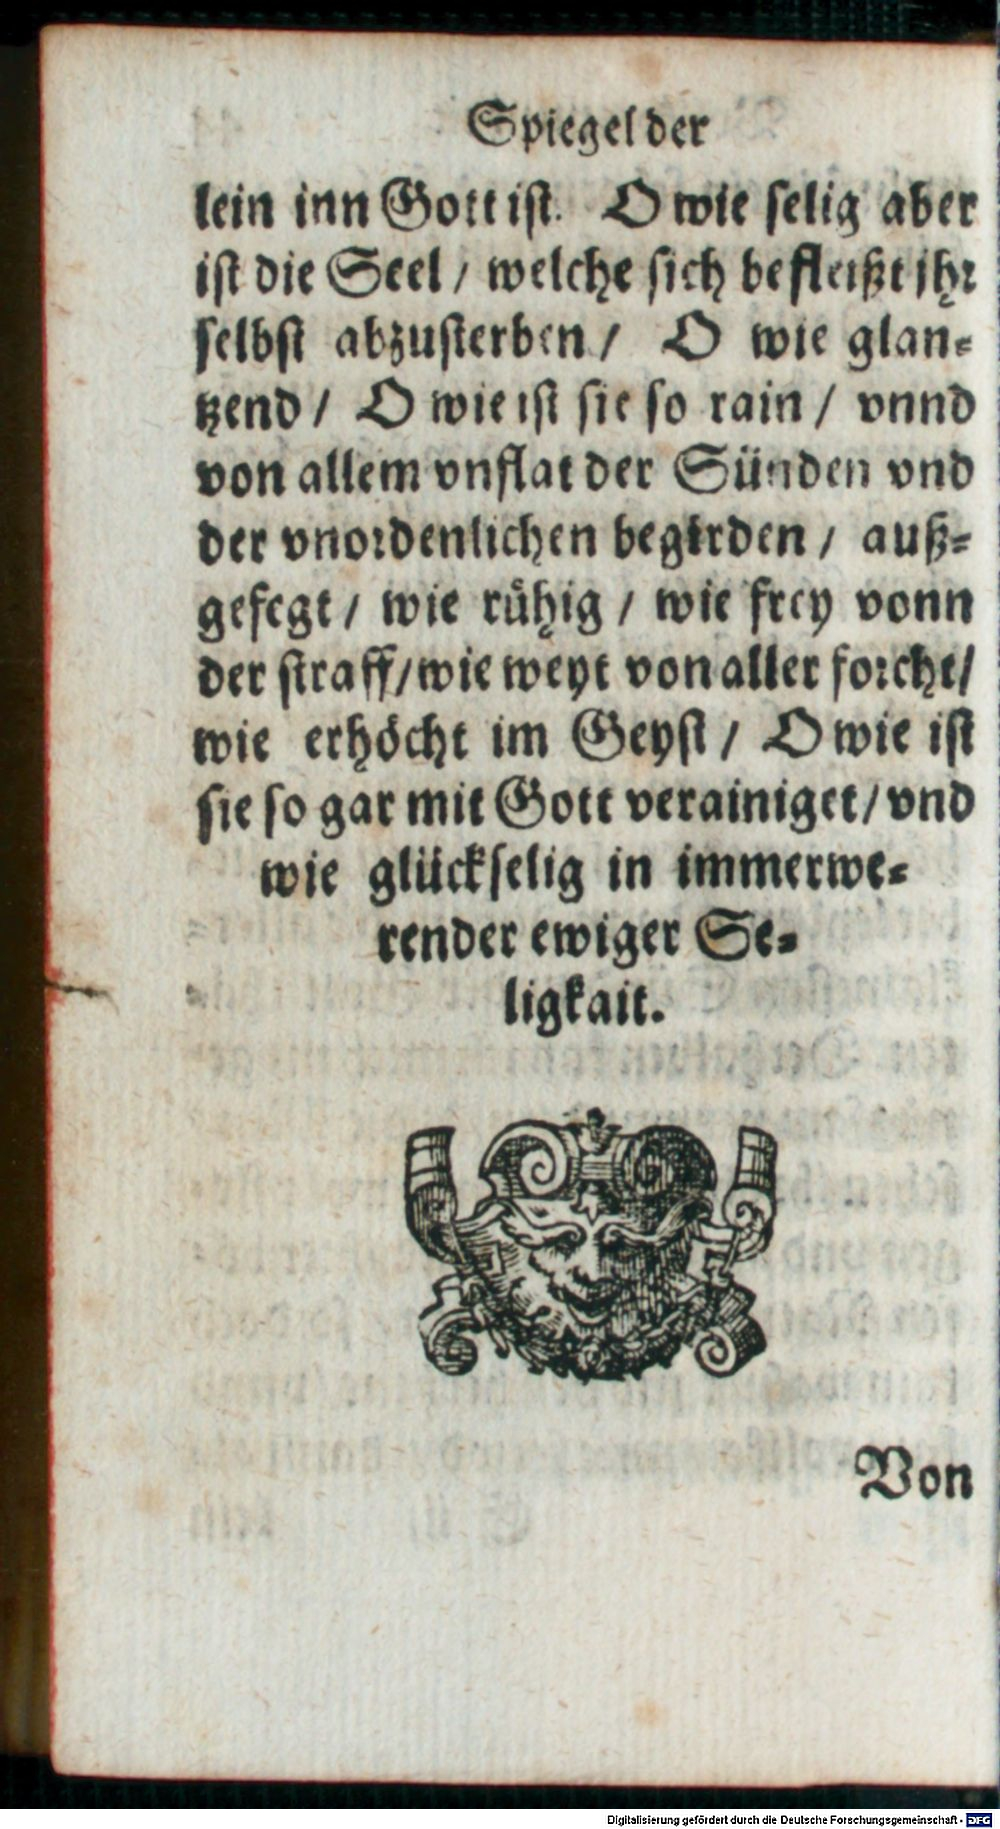 Spiegel der
lein inn Gott ist. O wie selig aber
ist die Seel / welche sich befleißt ihr
selbst abzusterben / O wie glan-
tzend / O wie ist sie so rain / vnnd
von allem vnflat der Sünden vnd
der vnordenlichen begirden / auß-
gefegt / wie rühig / wie frey vonn
der straff / wie weyt von aller forcht /
wie erhöcht im Geyst / O wie ist
sie so gar mit Gott verainiget / vnd
wie glückselig in immerwe-
render ewiger Se-
ligkait.
Von
Digitalisierung gefördert durch die Deutsche Forschungsgemeinschaft - DFG